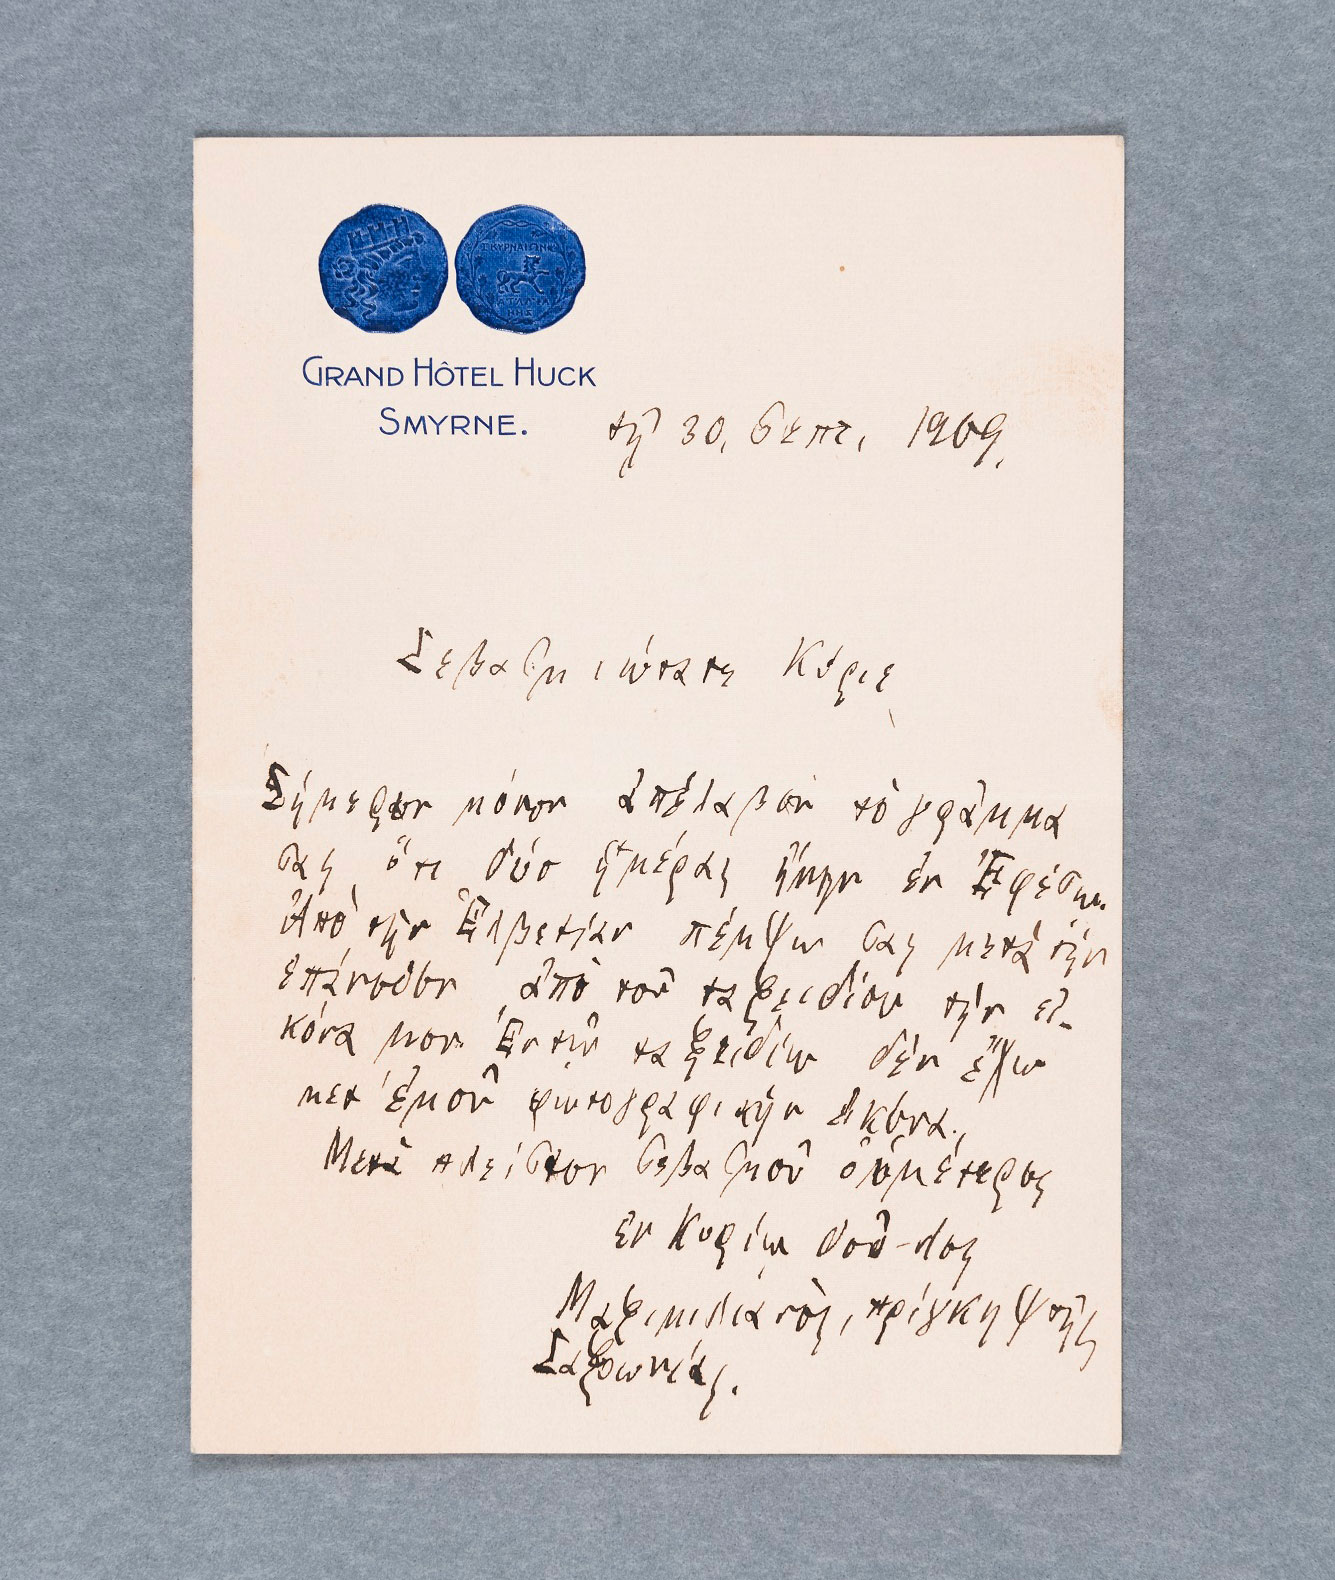 ΣΜΥΡΝΑΙΩΝ
GRAND HÔTEL HUCK
SMYRNE.
τῇ 30, Σεπτ, 1909,
Σεβασμιώτατε Κύριε
Σήμερον μόνον ἀπέλαβον τὸ γράμμα
σας ὅτι δύο ἡμέρας ἤμην ἐν Ἐφέσῳ.
Ἀπὸ τὴν Ἑλβετίαν πέμψω σας μετὰ τὴν
ἐπάνοδον ἀπὸ τοῦ ταξειδίου τὴν εἰ-
κόνα μου. Ἐν τῷ ταξειδίῳ δὲν ἔχω
μετ' ἐμοῦ φωτογραφικὴν εἰκόνα.
Μετὰ πλείστου σεβασμοῦ ὁ ὑμέτερος
ἐν Κυρίῳ δοῦλος
Μαξιμιλιανὸς, πρίγκηψ τῆς
Σαξωνίας.